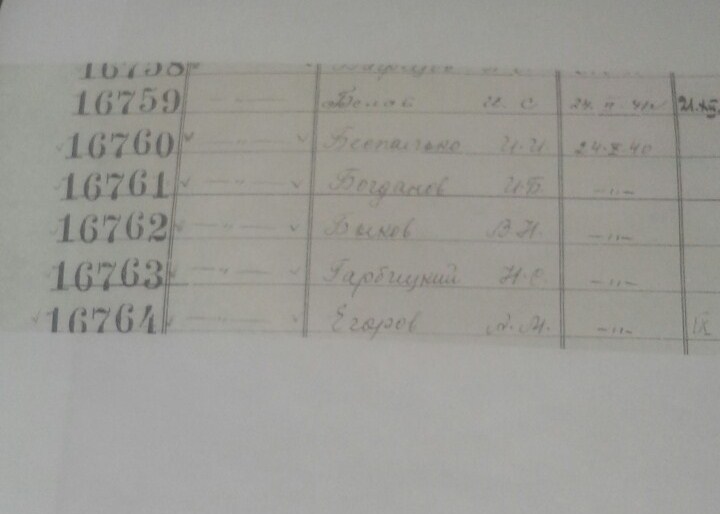 16758
16759 — " — Белой И. С. 24.II.41
16760 — " — Беспалько И. И. 24.X.40
16761 — " — Богданов И. Б. — " —
16762 — " — Быков В. Н. — " —
16763 — " — Гарбицкий Н. С. — " —
16764 — " — Егоров А. М. — " — IX